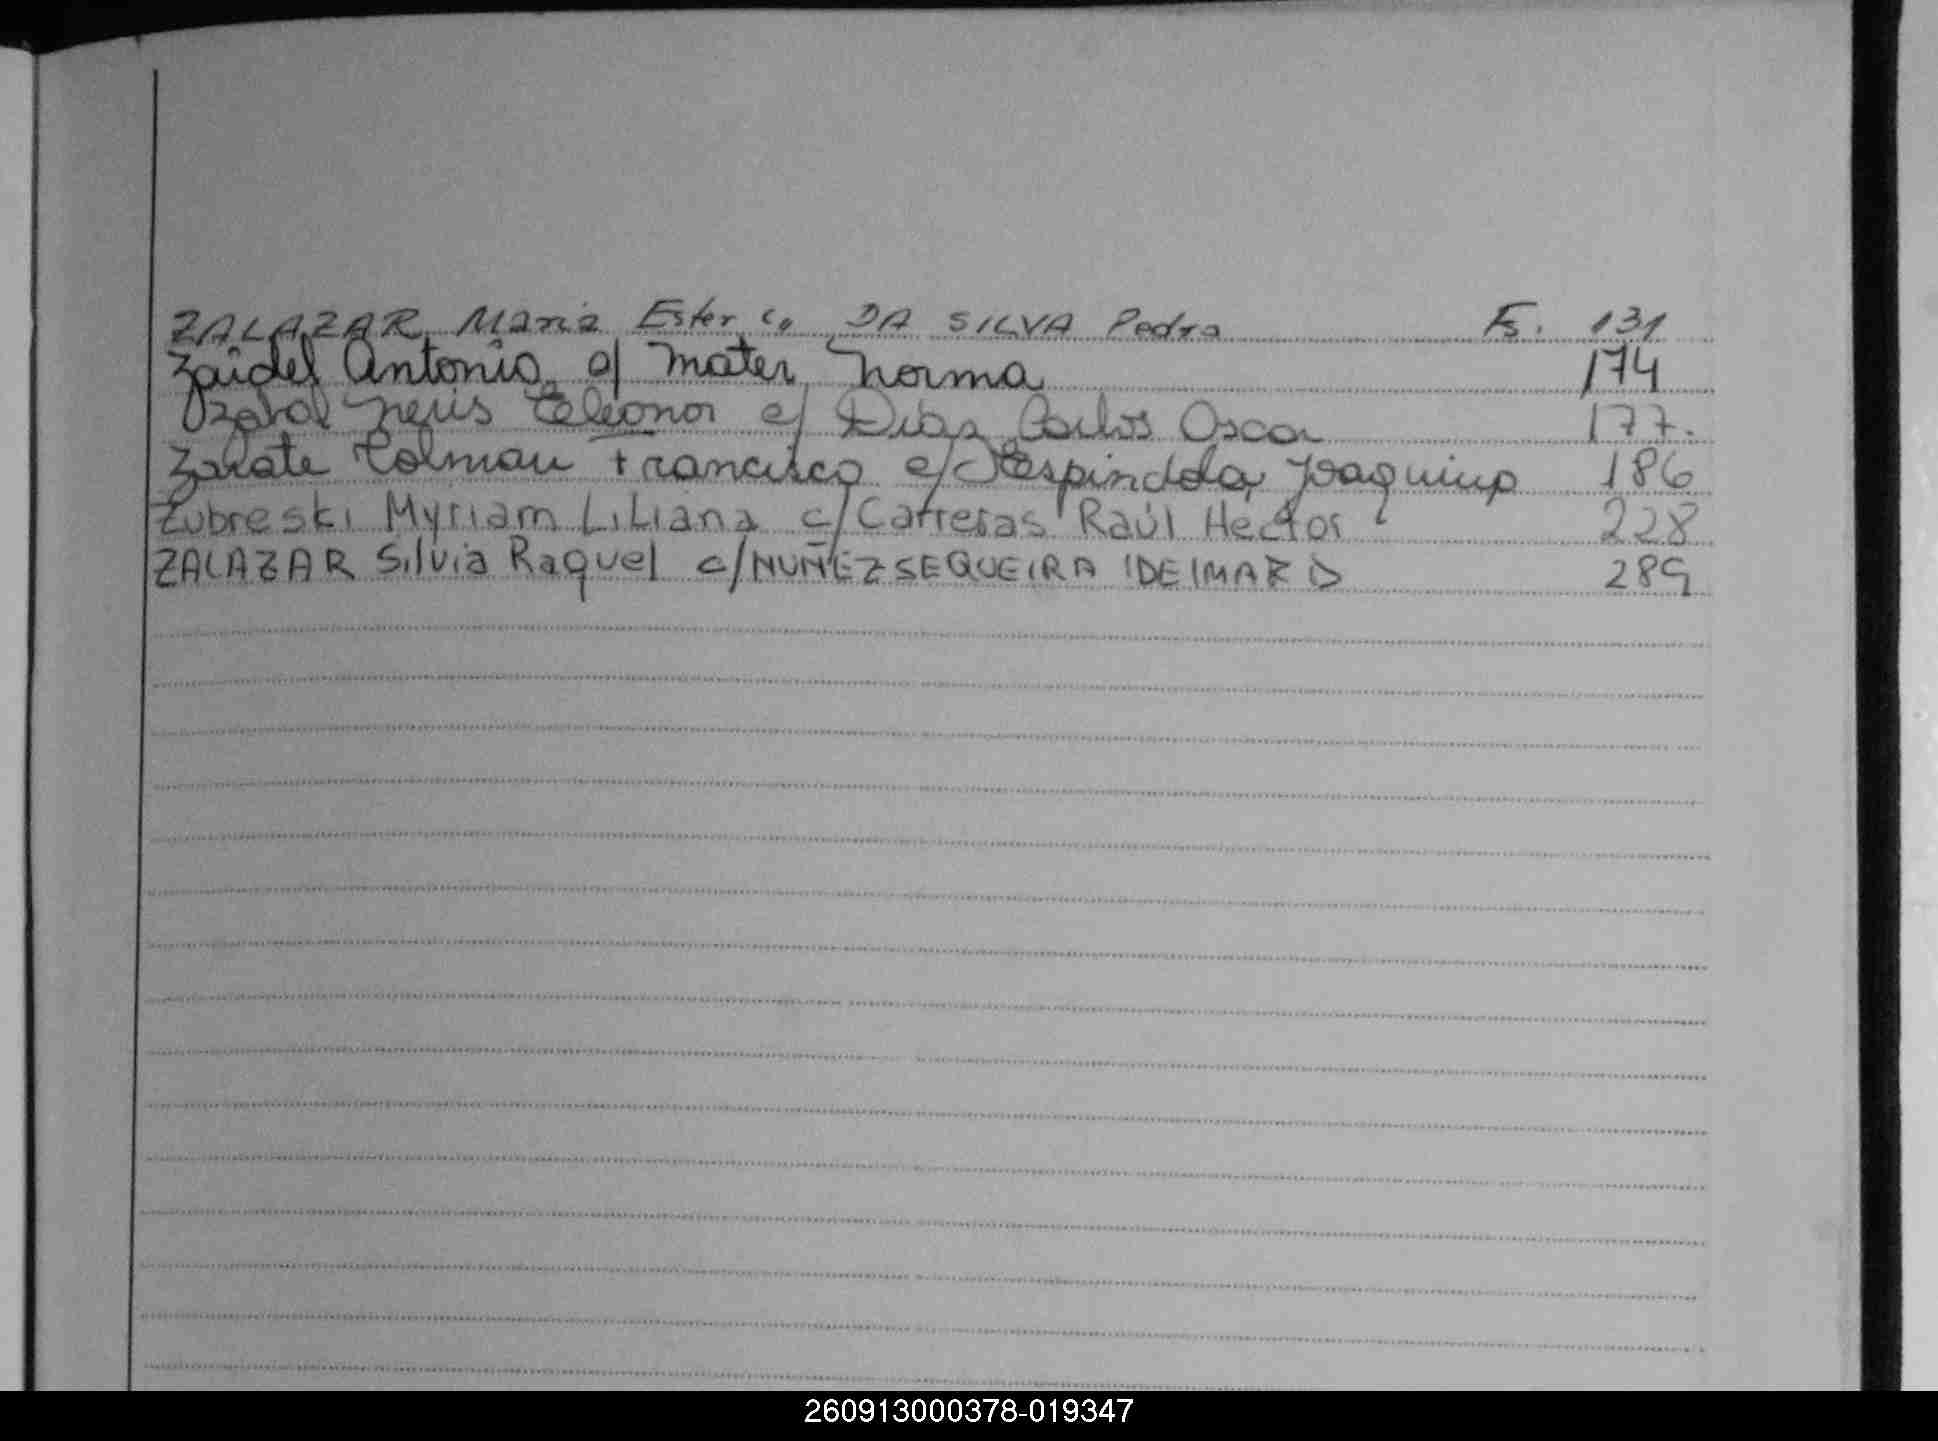 ZALAZAR Maria Ester c/ DA SILVA Pedro Fs. 131
Zaidel Antonio c/ Mater Norma 174
Neris Eleonor c/ Diaz Carlos Oscar 177.
Zarate Colman Francisco c/ Espindola 186
Zubreski Myriam Liliana c/ Carreras Raúl Hector 228
ZALAZAR Silvia Raquel c/ NUÑEZ SEQUEIRA 289
260913000378-019347